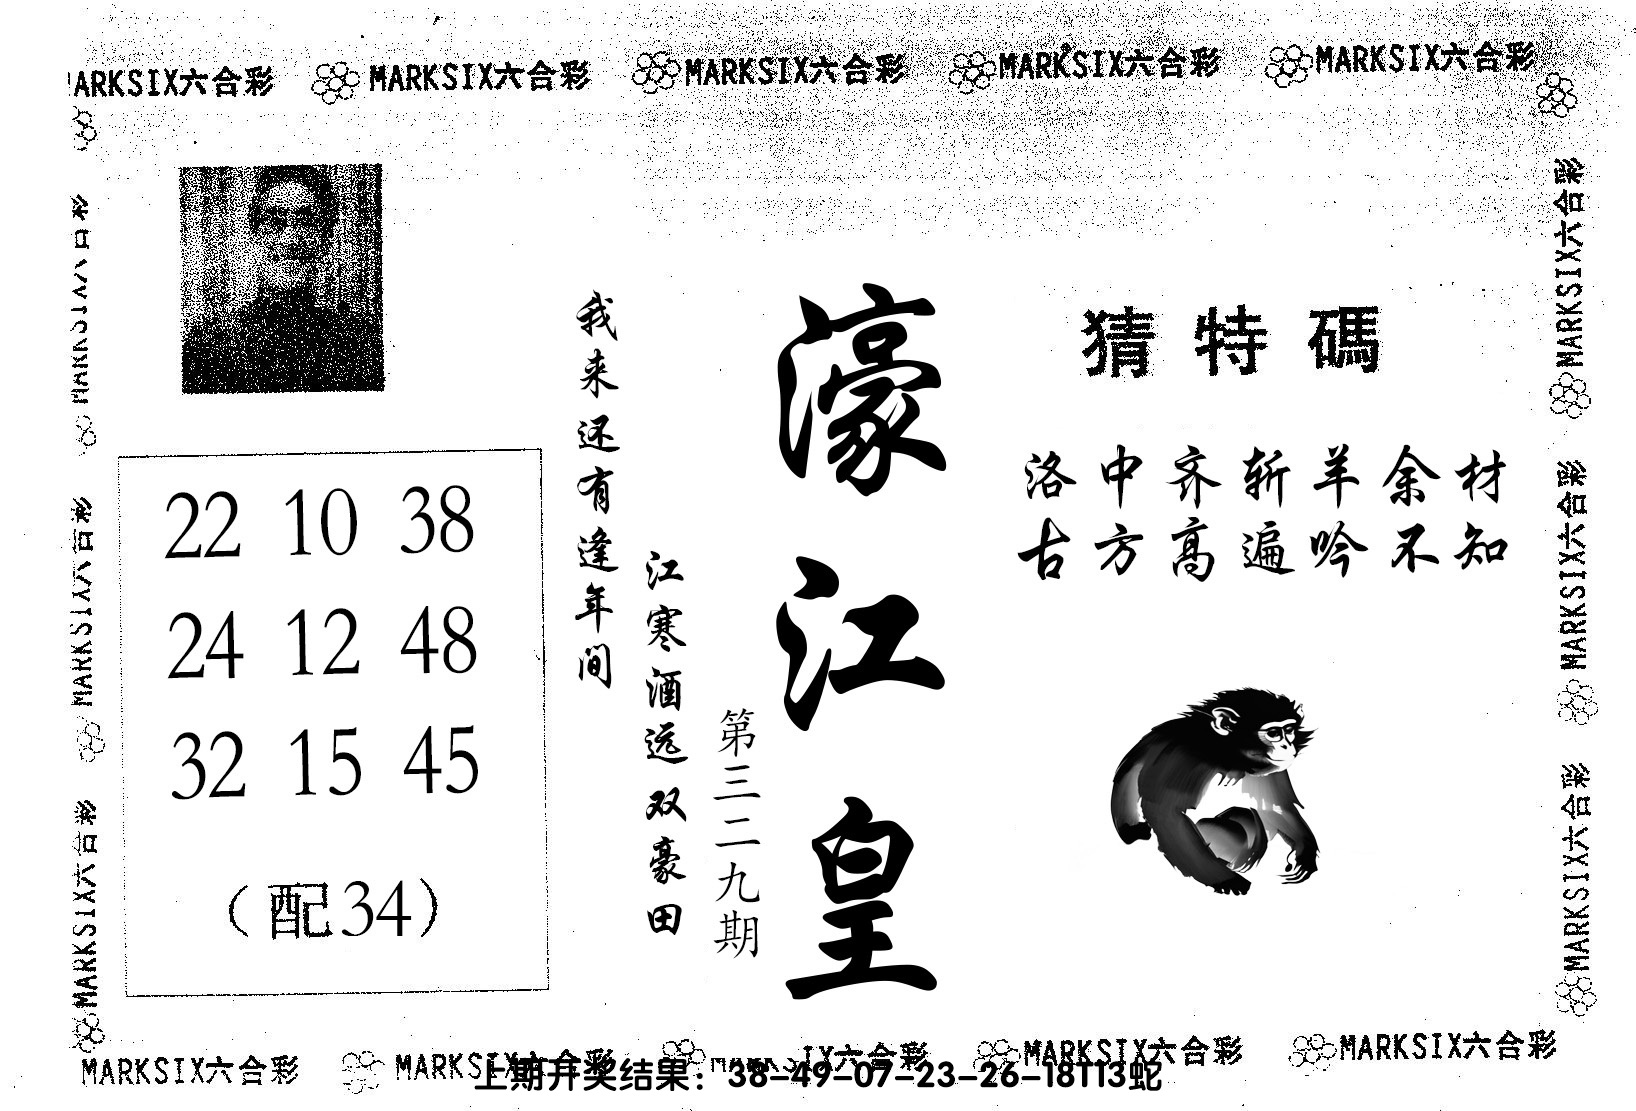 MARKSIX六合彩 MARKSIX六合彩 MARKSIX六合彩 MARKSIX六合彩
猜特碼
洛中齐斩羊余材
古方高遍吟不知
濠江皇
第三二九期
江寒酒远双豪田
我来还有逢年间
22 10 38
24 12 48
32 15 45
(配34)
MARKSIX六合彩
MARKSIX六合彩
MARKSIX六合彩
MARKSIX六合彩
MARKSIX六合彩
MARKSIX六合彩 MARKSIX六合彩 MARKSIX六合彩 MARKSIX六合彩
上期开奖结果：38-49-07-23-26-18T13蛇